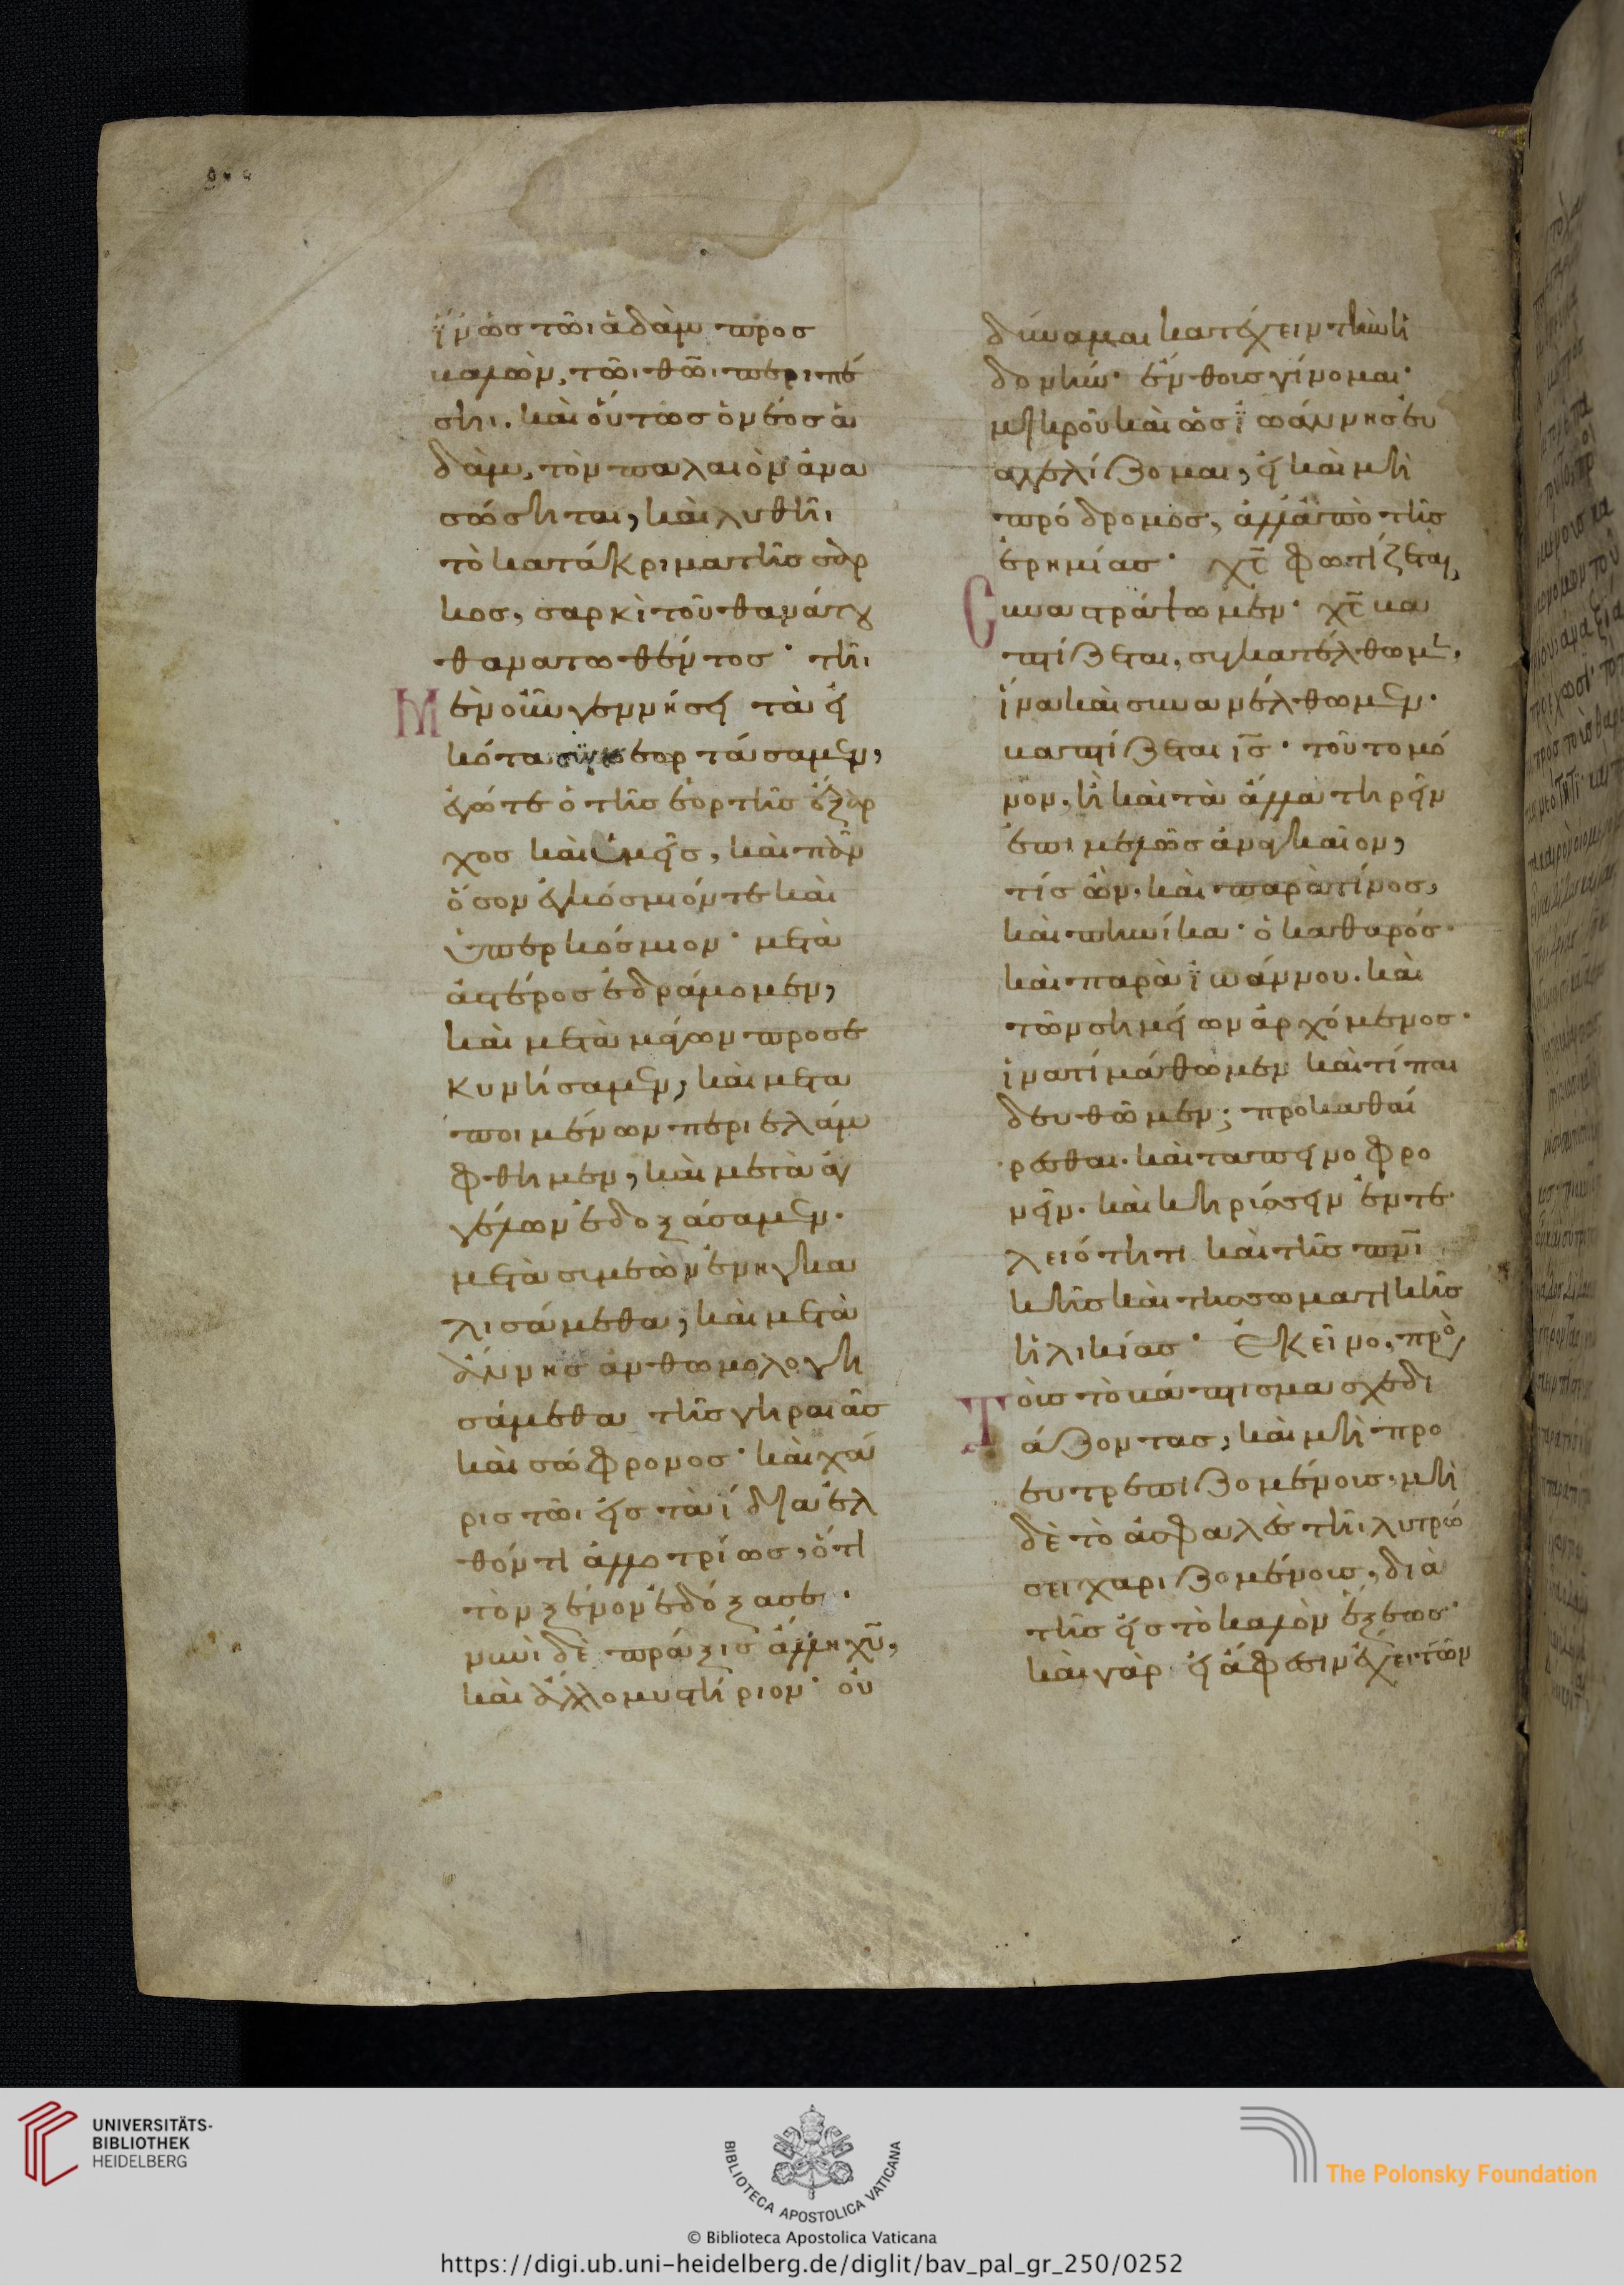 ἵν ὡς τῶι ἀδὰμ προσ
βαλὼν, τῶι θῶι περιπέ
σηι. καὶ οὕτως ὁ νέος ἀ
δὰμ, τὸν παλαιὸν ἀνα
σώσηται, καὶ λυθῆι
τὸ κατάκριμα τῆς σαρ
κος, σαρκὶ τοῦ θανάτου
θανατωθέντος· τῆι
Μὲν οὖν γεννήσει τὰ εἰ
κότα εορτάσαμεν,
ἐγώ τε ὁ τῆς ἑορτῆς ἔξαρ
χος καὶ ὑμεῖς, καὶ πᾶν
ὅσον ἐγκόσμιόν τε καὶ
ὑπερκόσμιον· μετὰ
ἀστέρος ἐδράμομεν,
καὶ μετὰ μάγων προσε
κυνήσαμεν, καὶ μετα
ποιμένων περιελάμ
φθημεν, καὶ μετὰ ἀγ
γέλων ἐδοξάσαμεν.
μετὰ συμεὼν ἐνηγκα
λισάμεθα, καὶ μετὰ
ἄννης ἀνθωμολογη
σάμεθα τῆς γηραιᾶς
καὶ σώφρονος· καὶ χά
ρις τῶι εἰς τὰ ἴδια ἐλ
θόντι ἀλλοτρίως, ὅτι
τὸν ξένον ἐδόξασε.
νυνὶ δὲ πράξις ἄλλη χῦ,
καὶ ἄλλο μυστήριον· οὐ
δύναμαι κατέχειν τὴν ἡ
δονήν· ἔνθους γίνομαι·
μικροῦ καὶ ὡς ἰωάννης εὐ
αγγελίζομαι, εἰ καὶ μὴ
πρόδρομος, ἀλλ ἀπὸ τῆς
ἐρημίας· χς φωτίζεται,
Συναστράψωμεν· χς βα
πτίζεται, συγκατέλθωμεν,
ἵνα καὶ συνανέλθωμεν.
βαπτίζεται ις· τοῦτο μό
νον, ἢ καὶ τὰ ἄλλα τηρεῖν
ἐπιμελῶς ἀναγκαῖον,
τίς ὢν. καὶ παρὰ τίνος,
καὶ πηνίκα· ὁ καθαρός·
καὶ παρὰ ἰωάννου. καὶ
τῶν σημείων ἀρχόμενος·
ἵνα τί μάθωμεν καὶ τί παι
δευθῶμεν; προκαθαί
ρεσθαι. καὶ ταπεινοφρο
νεῖν. καὶ κηρύσσειν ἐν τε
λειότητι καὶ τῆς πνι
κῆς καὶ τῆς σωματικῆς
ἡλικίας· Ἐκεῖνο, πρὸς
Τοὺς τὸ βάπτισμα σχεδι
άζοντας, καὶ μὴ προ
ευτρεπιζομένους, μη
δὲ τὸ ἀσφαλὲς τῆι λυτρώ
σει χαριζομένους, διὰ
τῆς εἰς τὸ καλὸν ἕξεως·
καὶ γὰρ εἰ ἄφεσιν ἔχει τῶν
UNIVERSITÄTS-
BIBLIOTHEK
HEIDELBERG
BIBLIOTECA APOSTOLICA VATICANA
© Biblioteca Apostolica Vaticana
The Polonsky Foundation
https://digi.ub.uni-heidelberg.de/diglit/bav_pal_gr_250/0252